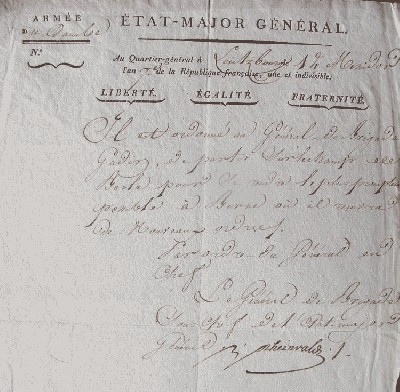 ARMÉE
ÉTAT-MAJOR GÉNÉRAL.
D
N.º
Au Quartier-général à
l'an de la République française, une et indivisible.
LIBERTÉ. ÉGALITÉ. FRATERNITÉ.
Il est ordonné au Général de Brigade
de partir sur le champ
poste pour se rendre le plus promptement
possible à Berne où il recevra
de nouveaux ordres.
Par ordre du Général en
Chef
Le Général de Brigade
Chef de l'Etat-major
Général